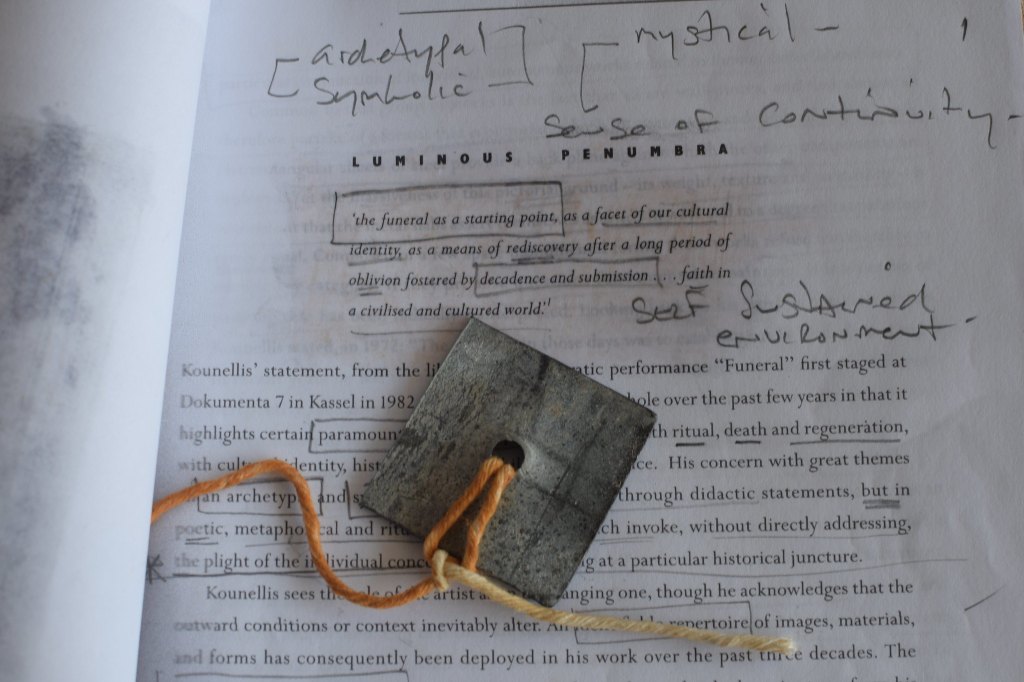 archetypal
Symbolic
mystical -
1
Sense of Continuity -
LUMINOUS PENUMBRA
'the funeral as a starting point, as a facet of our cultural
identity, as a means of rediscovery after a long period of
oblivion fostered by decadence and submission . . . faith in
a civilised and cultured world.'1
Self Sustained
environment -
Kounellis' statement, from the performance "Funeral" first staged at
Dokumenta 7 in Kassel in 1982 over the past few years in that it
highlights certain ritual, death and regeneration,
with identity, His concern with great themes
an and through didactic statements, but in
poetic, and invoke, without directly addressing,
the plight of the individual at a particular historical juncture.
Kounellis sees artist one, though he acknowledges that the
outward conditions or context inevitably alter. repertoire of images, materials,
and forms has consequently been deployed in his work over the past three decades. The